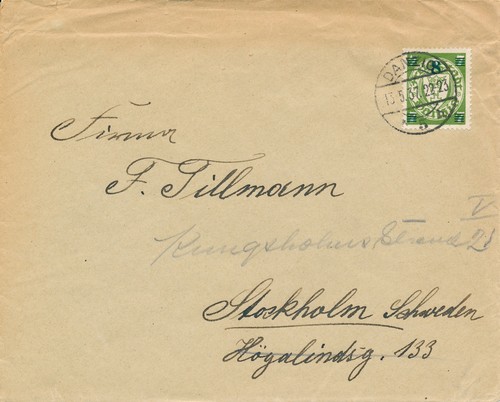 8
DAN
13.5.37.22-23
5
Firma
F. Tillmann
V
Kungsholms Strand 21
Stockholm Schweden
Högalindsg. 133